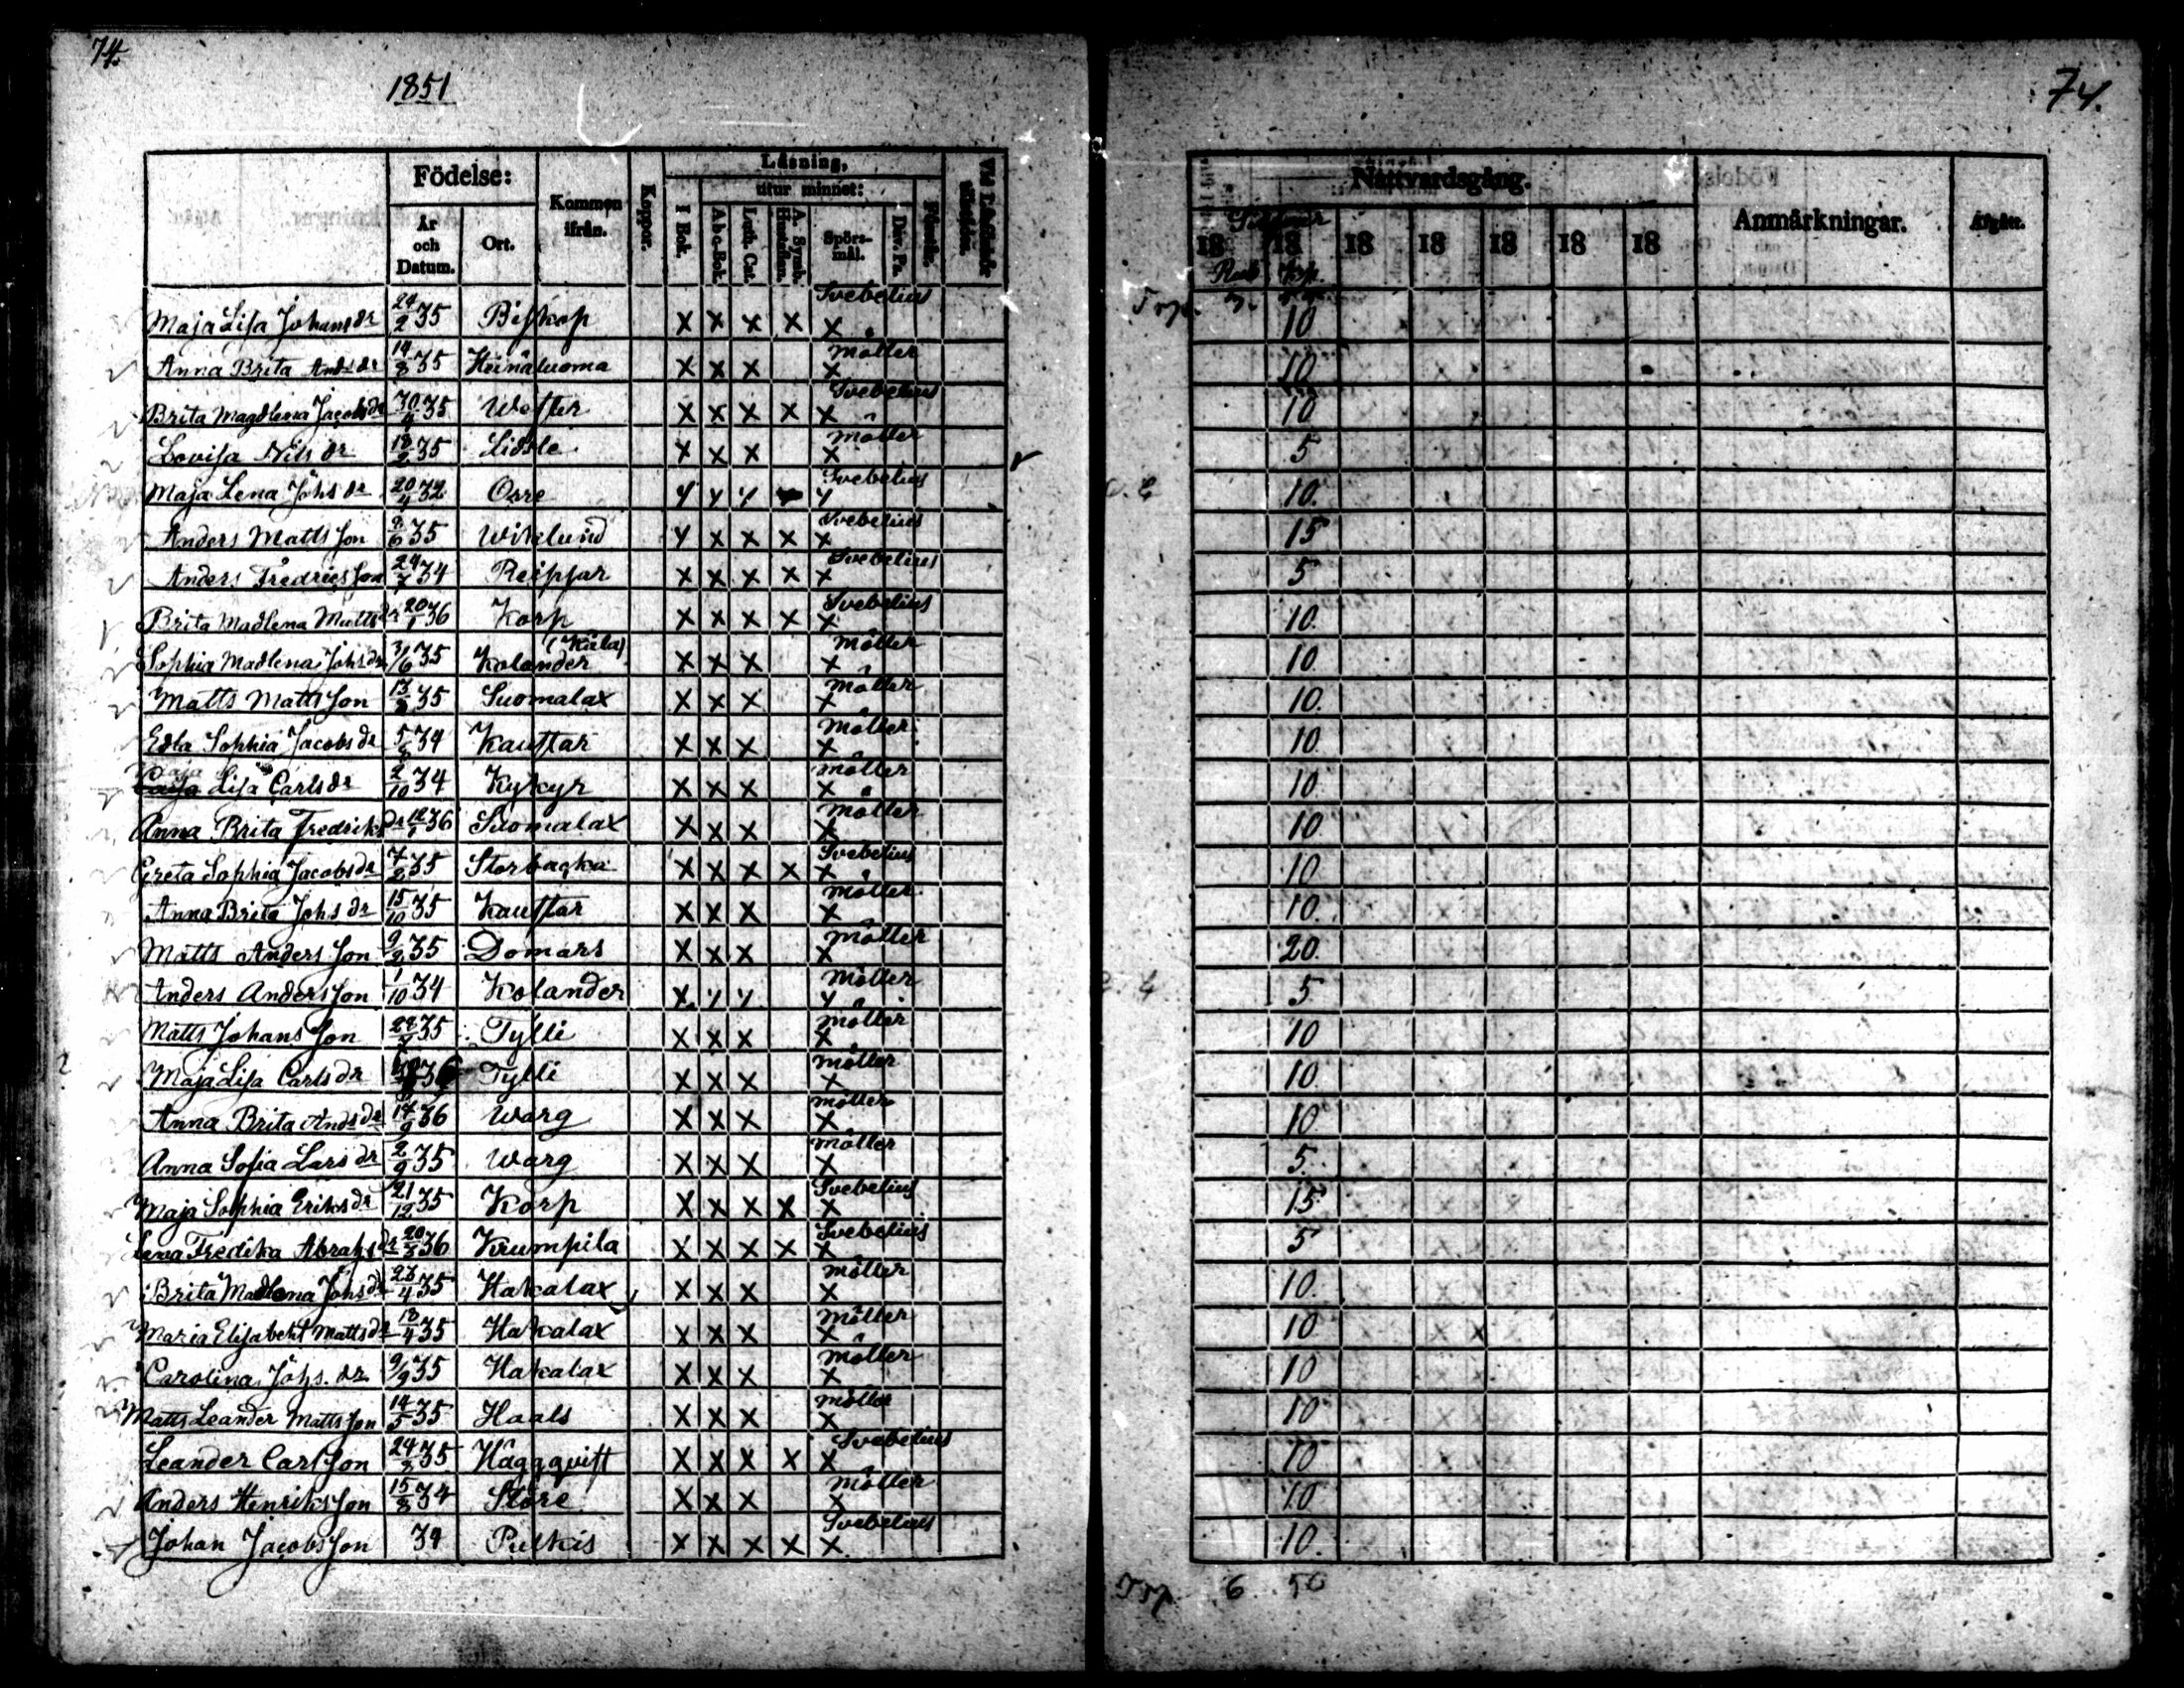 74.
1851
Födelse: Kommen ifrån. Koppor. Läsning, Vid Läsförhör
År och Datum. Ort. I Bok. utur minnet: A b c-Bok. Luth. Cat. A. Symb. Hustaflan. Spörsmål. Dav. Ps. Förstår.
Maja Lisa Johansdr 24/2 35 Biskop x x x x Svebelius x
Anna Brita Andsdr 14/8 35 Heinäluoma x x x Möller x
Brita Magdlena Jacobsdr 30/4 35 Wester x x x x Svebelius x
Lovisa Nilsdr 18/2 35 Lidsle x x x Möller x
Maja Lena Johsdr 20/4 32 Orre Svebelius
Anders Mattsson 35 Wiklund x x x x Svebelius x
Anders Fredricsson 24/7 34 Reippar x x x x Svebelius x
Brita Madlena Mattsdr 20/1 36 Korp x x x x Svebelius x
Sophia Madlena Johsdr 3/6 35 Kolander (Kåla) x x x Möller x
Matts Mattsson 13/8 35 Suomalax x x x Möller x
Edla Sophia Jacobsdr 34 Kaustar x x x Möller x
Maja Lisa Carlsdr 2/10 34 Kykyr x x x Möller x
Anna Brita Fredriksdr 36 Suomalax x x x Möller x
Greta Sophia Jacobsdr 7/2 35 Storbacka x x x x Svebelius x
Anna Brita Johsdr 15/10 35 Kaustar x x x Möller x
Matts Andersson 9/2 35 Domars x x x Möller x
Anders Andersson 1/10 34 Kolander Möller
Matts Johansson 35 Tylli x x x Möller x
Maja Lisa Carlsdr 36 Tylli x x x Möller x
Anna Brita Andsdr 36 Warg x x x Möller x
Anna Sofia Larsdr 2/9 35 Warg x x x Möller x
Maja Sophia Eriksdr 21/12 35 Korp x x x x Svebelius x
Lena Fredika Abrahsdr 20/3 36 Krumpila x x x x Svebelius x
Brita Madlena Johsdr 23/4 35 Hakalax x x x Möller x
Maria Elisabeht Mattsdr 18/4 35 Hakalax x x x Möller x
Carolina Johs.dr 9/9 35 Hakalax x x x Möller x
Matts Leander Mattsson 14/5 35 Haals x x x Möller x
Leander Carlsson 24/8 35 Häggqvist x x x x Svebelius x
Anders Henriksson 15/8 34 Store x x x Möller x
Johan Jacobsson 34 Pulkis x x x x Svebelius x
74.
Nattvardsgång. Anmärkningar. Afgått.
18 18 18 18 18 18 18
Rub kop.
Trp.
10
10
10
5
10.
15
5
10.
10
10.
10.
10
10
10
10.
20.
5
10
10.
10.
5.
15
5
10.
10
10
10
10
10
10.
Trp 6 50